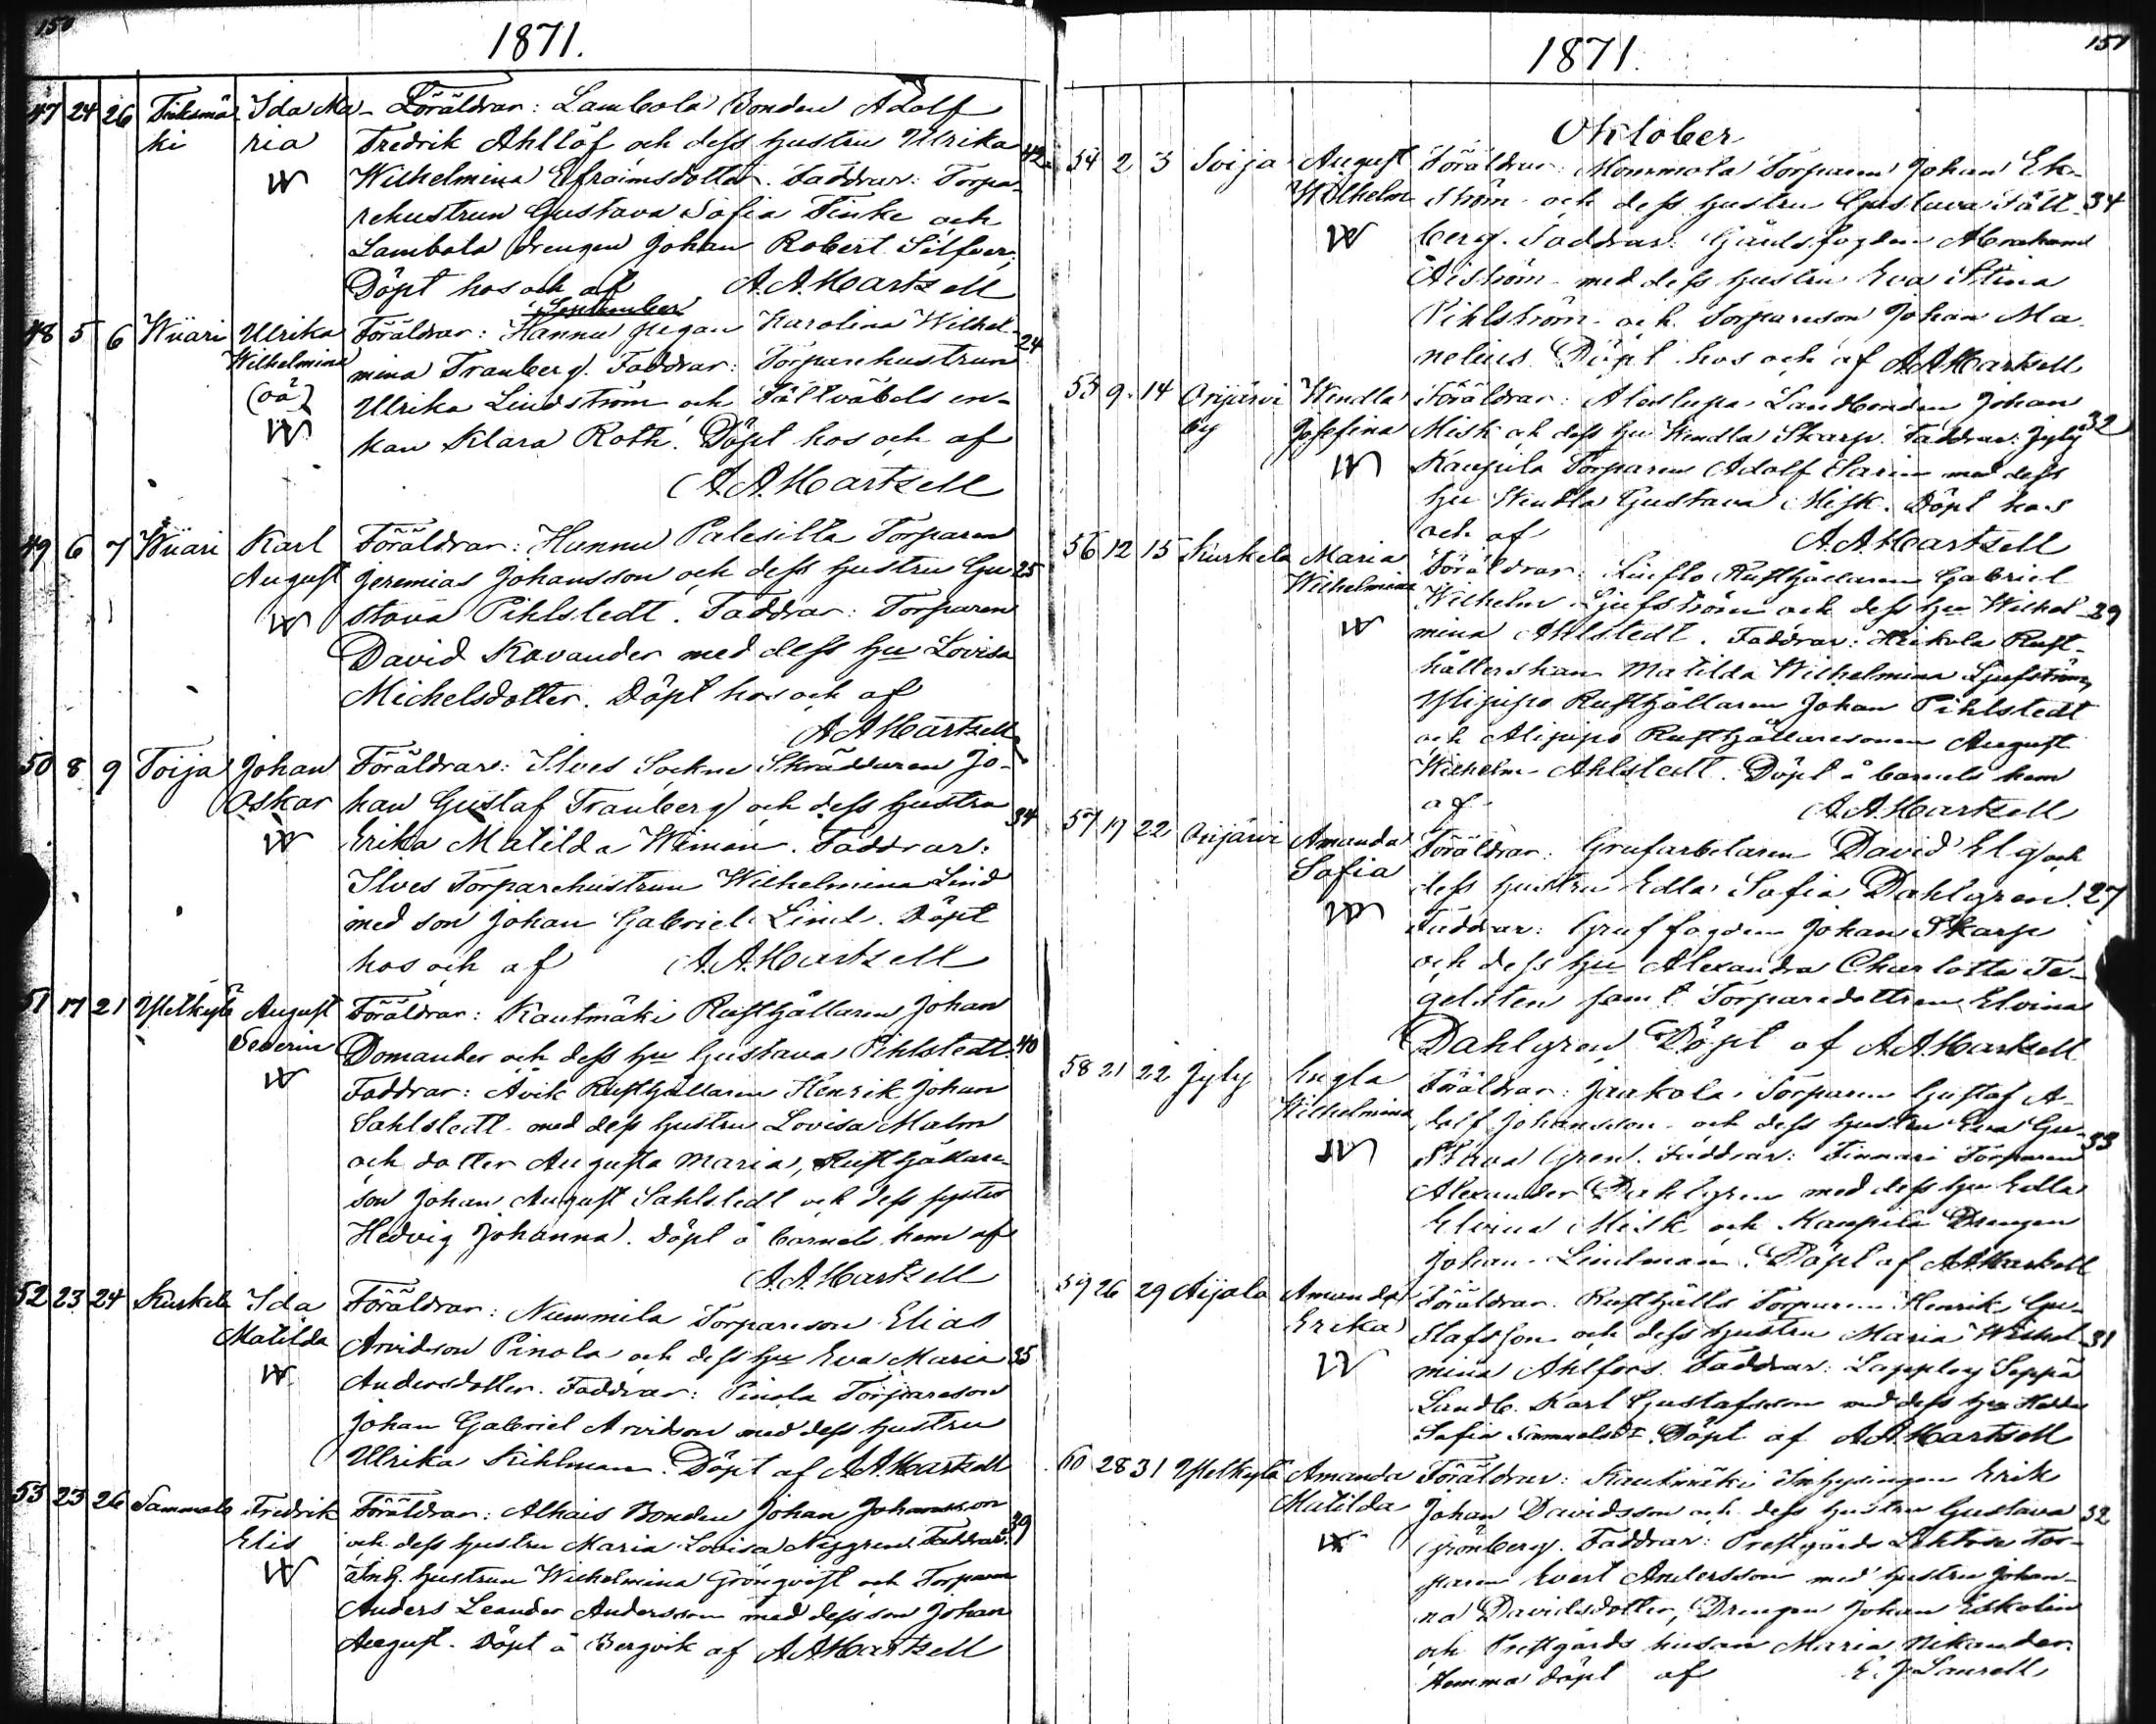 150
1871.
47 24 26 Tiiksmä- Ida Ma- Föräldrar: Lambola Bonden Adolf
ki ria Fredrik Ahllöf och dess hustru Ulrika 42
W Wilhelmina Efraimsdotter. Faddrar: Torpa-
rehustrun Gustava Sofia Finke och
Lambola drengen Johan Robert Silfver.
Döpt hos och af A.A. Hartzell
September
48 5 6 Wiiari Ulrika Föräldrar: Hannu pigan Karolina Wilhel- 24
Wilhelmina mina Tranberg. Faddrar: Torparehustrun
(oä) Ulrika Lindström och Fältväbels en-
W kan Klara Roth. Döpt hos och af
A.A. Hartzell
49 6 7 Wiiari Karl Föräldrar: Hannu Palesilta Torparen
August Jeremias Johansson och dess hustru Gu- 25
W stava Pihlstedt. Faddrar: Torparen
David Kavander med dess hu Lovisa
Michelsdotter. Döpt hos och af
A A Hartzell
50 8 9 Toija Johan Föräldrar: Ilves Sockne Skräddaren Jo-
Oskar han Gustaf Tranberg och dess hustru 34
W Erika Matilda Wiman. Faddrar:
Ilves Torparehustrun Wilhelmina Lind
med son Johan Gabriel Lind. Döpt
hos och af A.A. Hartzell
51 17 21 Ylelkylä August Föräldrar: Kautmäki Rusthållaren Johan
Severin Domander och dess hu Gustava Pihlstedt. 40
W Faddrar: Åvik Rusthållaren Henrik Johan
Sahlstedt med dess hustru Lovisa Malm
och dotter Augusta Maria, Rusthållare-
son Johan August Sahlstedt och dess syster
Hedvig Johanna. Döpt i barnets hem af
A.A. Hartzell
52 23 24 Kurkela Ida Föräldrar: Nummila Torpareson Elias
Matilda Arvidson Pinola och dess hu Eva Maria 35
W Andersdotter. Faddrar: Pinola Torpareson
Johan Gabriel Arvidson med dess hustru
Ulrika Kihlman. Döpt af A.A. Hartzell
53 23 26 Sammalo Fredrik Föräldrar: Alhais Bonden Johan Johansson
Elis och dess hustru Maria Lovisa Nygren. Faddrar: 39
W Inh. hustrun Wilhelmina Grönqvist och Torparen
Anders Leander Andersson med dess son Johan
August. Döpt å Bergvik af A A Hartzell
151
1871.
Oktober
54 2 3 Toija August Föräldrar: Mommola Torparen Johan Ek-
Wilhelm ström och dess hustru Gustava Fält- 34
W berg. Faddrar: Gårdsfogden Abraham
Åström med dess hustru Eva Stina
Pihlström och Torpareson Johan Ma-
nelius. Döpt hos och af A A Hartzell
55 9 14 Orijärvi Wendla Föräldrar: Alastupa Landbonden Johan
by Josefina Misk och dess hu Wendla Skarp. Faddrar: Jyly 32
W Kaupila Torparen Adolf Elarin med dess
hu Wendla Gustava Misk. Döpt hos
och af A.A. Hartzell
56 12 15 Kurkela Maria Föräldrar: Rusthållaren Gabriel
Wilhelmina Wilhelm Ljufström och dess hu Wilhel- 29
W mina Ahlstedt. Faddrar: Heikola Rust-
hållerskan Matilda Wilhelmina Ljufström,
Ylipipo Rusthållaren Johan Pihlstedt
och Alipipo Rusthållaresonen August
Wilhelm Ahlstedt. Döpt i barnets hem
af A.A. Hartzell
57 17 22 Orijärvi Amanda Föräldrar: Grufarbetaren David Elg och
Sofia dess hustru Edla Sofia Dahlgren. 27
W Faddrar: Gruffogden Johan Skarp
och dess hu Alexandra Charlotta Te-
gelsten samt Torparedottren Elvina
Dahlgren. Döpt af A A Hartzell
58 21 22 Jyly Engla Föräldrar: Jaakola Torparen Gustaf A-
Wilhelmina dolf Johansson och dess hustru Eva Gu- 33
W stava Gren. Faddrar: Finnari Torparen
Alexander Dahlgren med dess hu Edla
Elvina Misk och Kaupila Drengen
Johan Lindman. Döpt af A A Hartzell
59 26 29 Aijala Amanda Föräldrar: Rusthålls Torparen Henrik Gu-
Erika stafsson och dess hustru Maria Wilhel- 31
W mina Ahlfors. Faddrar: Lappby Seppä
Landb. Karl Gustafsson med dess hu Hedda
Sofia Samuelsdr. Döpt af A A Hartzell
60 28 31 Ylelkylä Amanda Föräldrar: Kautmäki Inhysingen Erik
Matilda Johan Davidsson och dess hustru Gustava 32
W Grönberg. Faddrar: Prestgårds Lehtore Tor-
paren Evert Andersson med hustru Johan-
na Davidsdotter, Drengen Johan Eskolin
och Prestgårds husan Maria Nikander.
Hemma döpt af E. J. Laurell